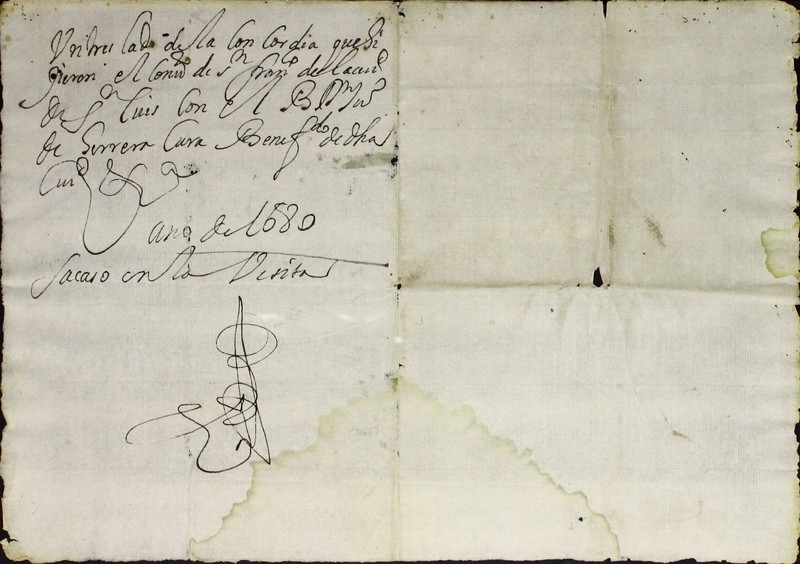 Un tresLado de la ConCordia que hi
çieron el Conv^to de s^n fran^co de la ciu^d
de s^n Luis Con el B^r
de Herrera Cura Benef^do de dha
Ciu^d
ano de 1680
sacaso en la Visita